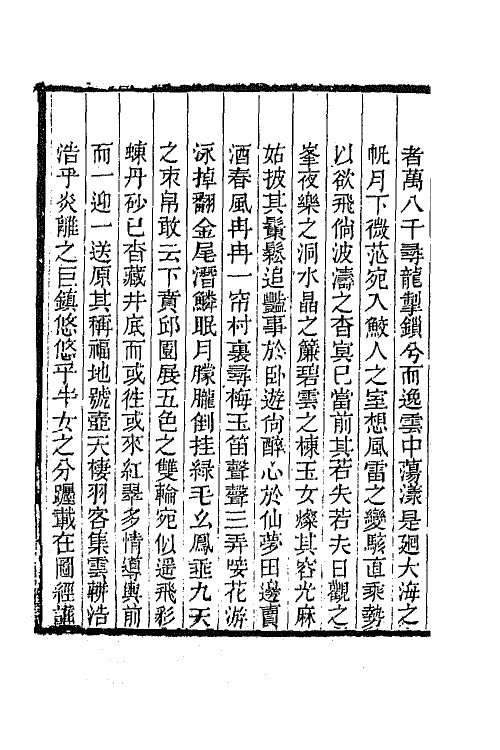 者萬八千尋龍掣鎖兮而逸雲中蕩漾是廻大海之
帆月下微茫宛入鮫人之室想風雷之變駭直乘勢
以欲飛倘波濤之杳冥已當前其若失若夫日觀之
峯夜樂之洞水晶之簾碧雲之棟玉女燦其容光麻
姑披其鬢鬆追豔事於臥遊尙醉心於仙夢田邊賣
酒春風冉冉一帘村裏尋梅玉笛聲聲三弄唼花游
泳掉翻金尾潛鱗眠月朦朧倒挂緑毛幺鳳垂九天
之束帛敢云下賁邱園展五色之雙輪宛似遥飛彩
蝀丹砂已杳藏井底而或徃或來紅翠多情導輿前
而一迎一送原其稱福地號壺天棲羽客集雲輧浩
浩乎炎離之巨鎮悠悠乎牛女之分躔載在圖經